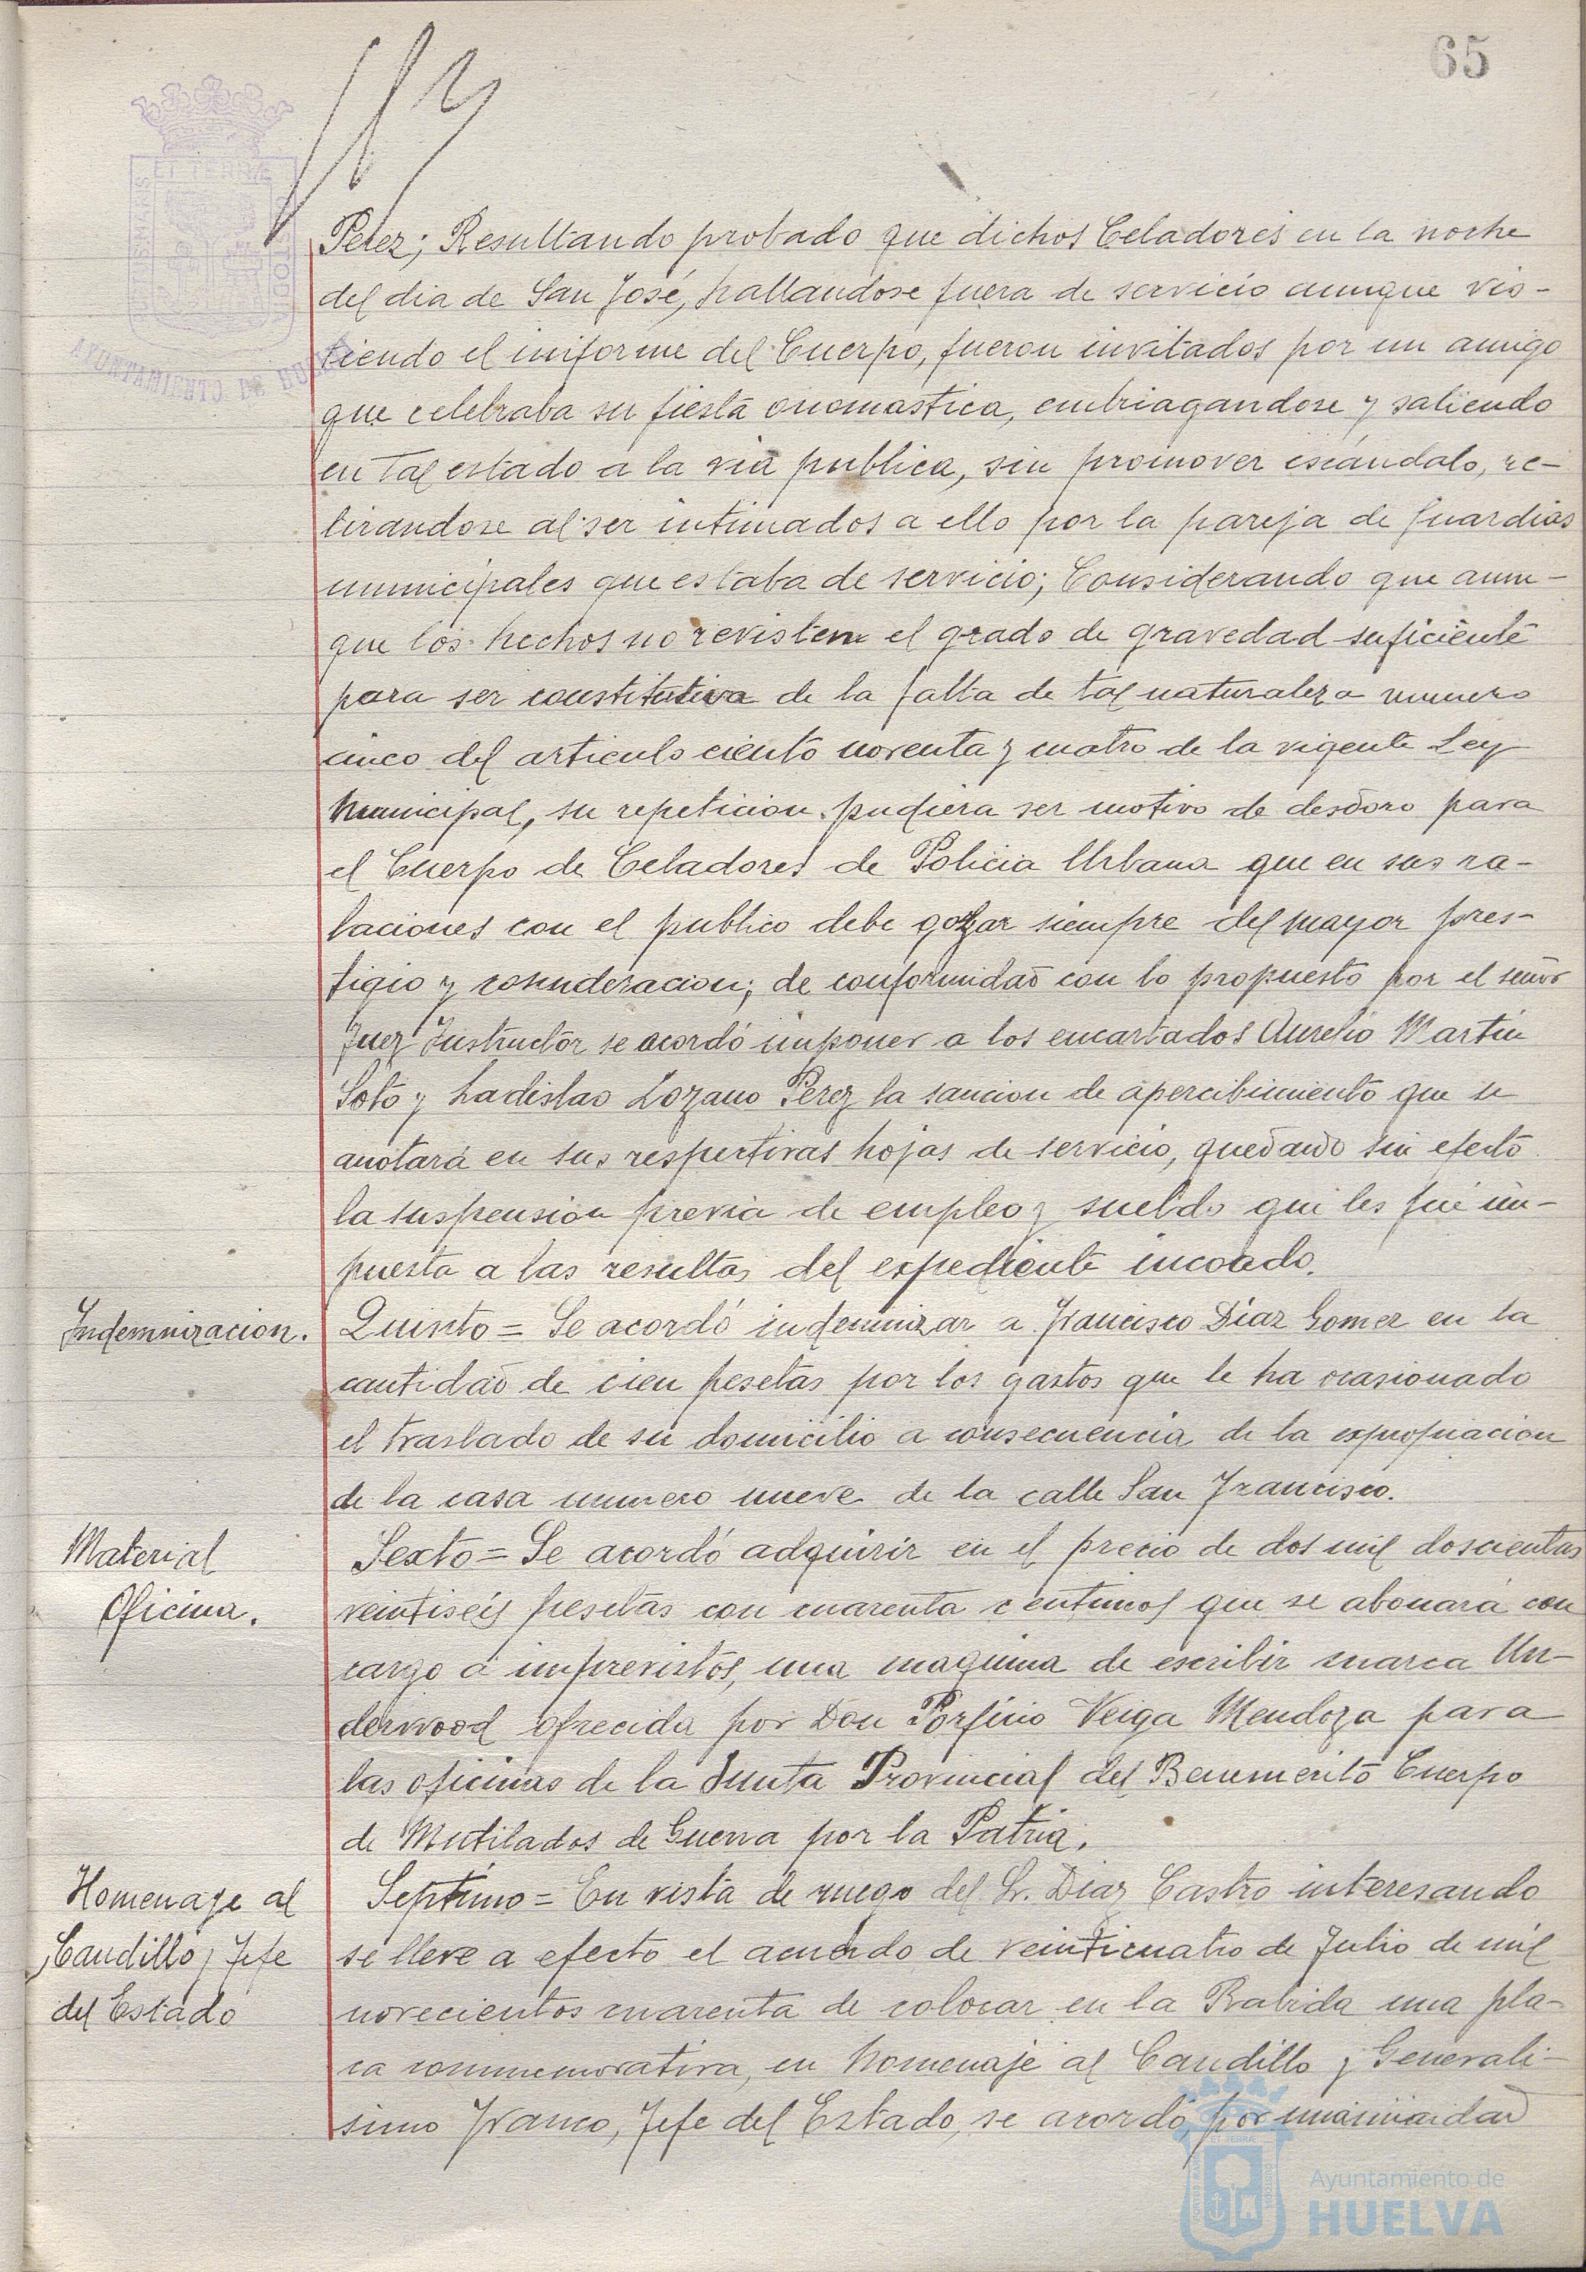 65
ET TERRÆ
CUSTODIA
AYUNTAMIENTO DE HUELVA
Perez; Resultando probado que dichos Celadores en la noche
del dia de San José, hallandose fuera de servicio aunque vis-
tiendo el uniforme del Cuerpo, fueron invitados por un amigo
que celebraba su fiesta onomastica, embriagandose y saliendo
en tal estado a la via publica, sin promover escándalo, re-
tirandose al ser intimados a ello por la pareja de guardias
municipales que estaba de servicio; Considerando que aun-
que los hechos no revisten el grado de gravedad suficiente
para ser constitutiva de la falta de tal naturaleza numero
cinco del articulo ciento noventa y cuatro de la vigente Ley
Municipal, su repeticion pudiera ser motivo de desdoro para
el Cuerpo de Celadores de Policia Urbana que en sus re-
laciones con el publico debe gozar siempre del mayor pres-
tigio y consideracion; de conformidad con lo propuesto por el señor
Juez Instructor se acordó imponer a los encartados Aurelio Martin
Soto y Ladislao Lozano Perez la sancion de apercibimiento que se
anotará en sus respectivas hojas de servicio, quedando sin efecto
la suspension previa de empleo y sueldo que les fué im-
puesta a las resultas del expediente incoado.
Indemnizacion.
Quinto = Se acordó indemnizar a Francisco Diaz Gomez en la
cantidad de cien pesetas por los gastos que le ha ocasionado
el traslado de su domicilio a consecuencia de la expropiacion
de la casa numero nueve de la calle San Francisco.
Material
Oficina.
Sexto = Se acordó adquirir en el precio de dos mil doscientas
veintiseis pesetas con cuarenta centimos que se abonará con
cargo a imprevistos, una maquina de escribir marca Un-
derwood ofrecida por Don Porfirio Veiga Mendoza para
las oficinas de la Junta Provincial del Benemerito Cuerpo
de Mutilados de Guerra por la Patria.
Homenaje al
Caudillo y Jefe
del Estado
Septimo = En vista de ruego del Sr. Diaz Castro interesando
se lleve a efecto el acuerdo de veinticuatro de Julio de mil
novecientos cuarenta de colocar en la Rabida una pla-
ca conmemorativa, en homenaje al Caudillo y Generali-
simo Franco, Jefe del Estado, se acordó por unanimidad
Ayuntamiento de
HUELVA